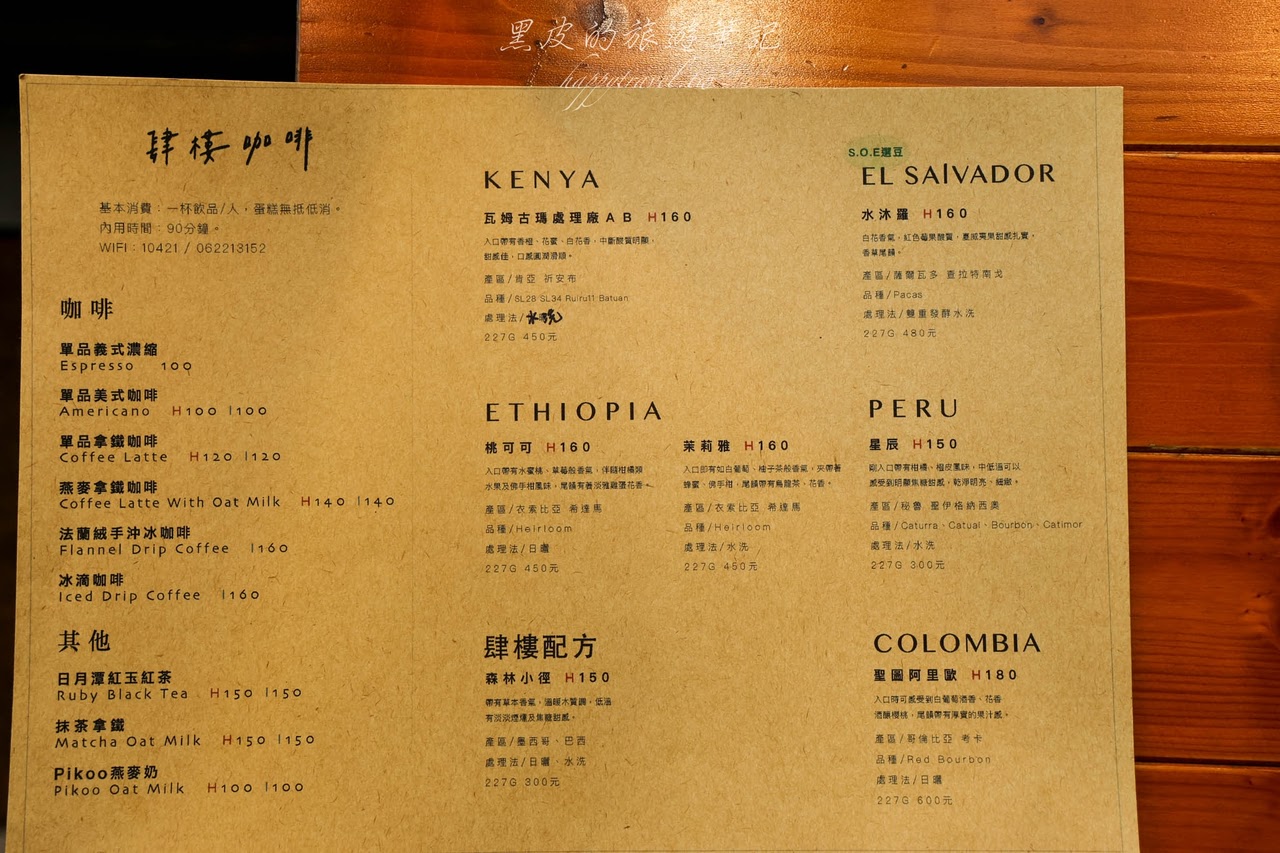 黑皮的旅遊筆記
肆樓咖啡
基本消費：一杯飲品/人，蛋糕無抵低消。
內用時間：90分鐘。
WIFI：10421 / 062213152
咖啡
單品義式濃縮
Espresso 100
單品美式咖啡
Americano H100 I100
單品拿鐵咖啡
Coffee Latte H120 I120
燕麥拿鐵咖啡
Coffee Latte With Oat Milk H140 I140
法蘭絨手沖冰咖啡
Flannel Drip Coffee I160
冰滴咖啡
Iced Drip Coffee I160
其他
日月潭紅玉紅茶
Ruby Black Tea H150 I150
抹茶拿鐵
Matcha Oat Milk H150 I150
Pikoo燕麥奶
Pikoo Oat Milk H100 I100
KENYA
瓦姆古瑪處理廠AB H160
入口帶有香橙、花蜜、白花香，中斷酸質明顯，
甜感佳，口感圓潤滑順。
產區/肯亞 祈安布
品種/SL28 SL34 Ruiru11 Batuan
處理法/水洗
227G 450元
S.O.E選豆
EL SALVADOR
水沐羅 H160
白花香氣，紅色莓果酸質，夏威夷果甜感扎實，
香草尾韻。
產區/薩爾瓦多 查拉特南戈
品種/Pacas
處理法/雙重發酵水洗
227G 480元
ETHIOPIA
桃可可 H160
入口帶有水蜜桃、草莓般香氣，伴隨柑橘類
水果及佛手柑風味，尾韻有著淡雅雞蛋花香。
產區/衣索比亞 希達馬
品種/Heirloom
處理法/日曬
227G 450元
茉莉雅 H160
入口即有如白葡萄、柚子茶般香氣，夾帶著
蜂蜜、佛手柑，尾韻帶有烏龍茶、花香。
產區/衣索比亞 希達馬
品種/Heirloom
處理法/水洗
227G 450元
PERU
星辰 H150
剛入口帶有柑橘、橙皮風味，中低溫可以
感受到明顯焦糖甜感，乾淨明亮、細緻。
產區/秘魯 聖伊格納西奧
品種/Caturra、Catual、Bourbon、Catimor
處理法/水洗
227G 300元
肆樓配方
森林小徑 H150
帶有草本香氣，溫暖木質調，低溫
有淡淡煙燻及焦糖甜感。
產區/墨西哥、巴西
處理法/日曬、水洗
227G 300元
COLOMBIA
聖圖阿里歐 H180
入口時可感受到白葡萄酒香、花香
酒釀櫻桃，尾韻帶有厚實的果汁感。
產區/哥倫比亞 考卡
品種/Red Bourbon
處理法/日曬
227G 600元